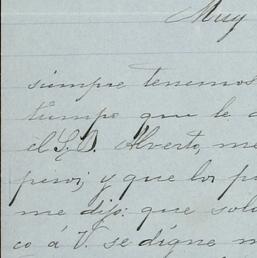 Muy
siempre tenemos
tiempo que le
el S.D. Alverto, me
pero; y que los
me dijo: que
co á V. se digne